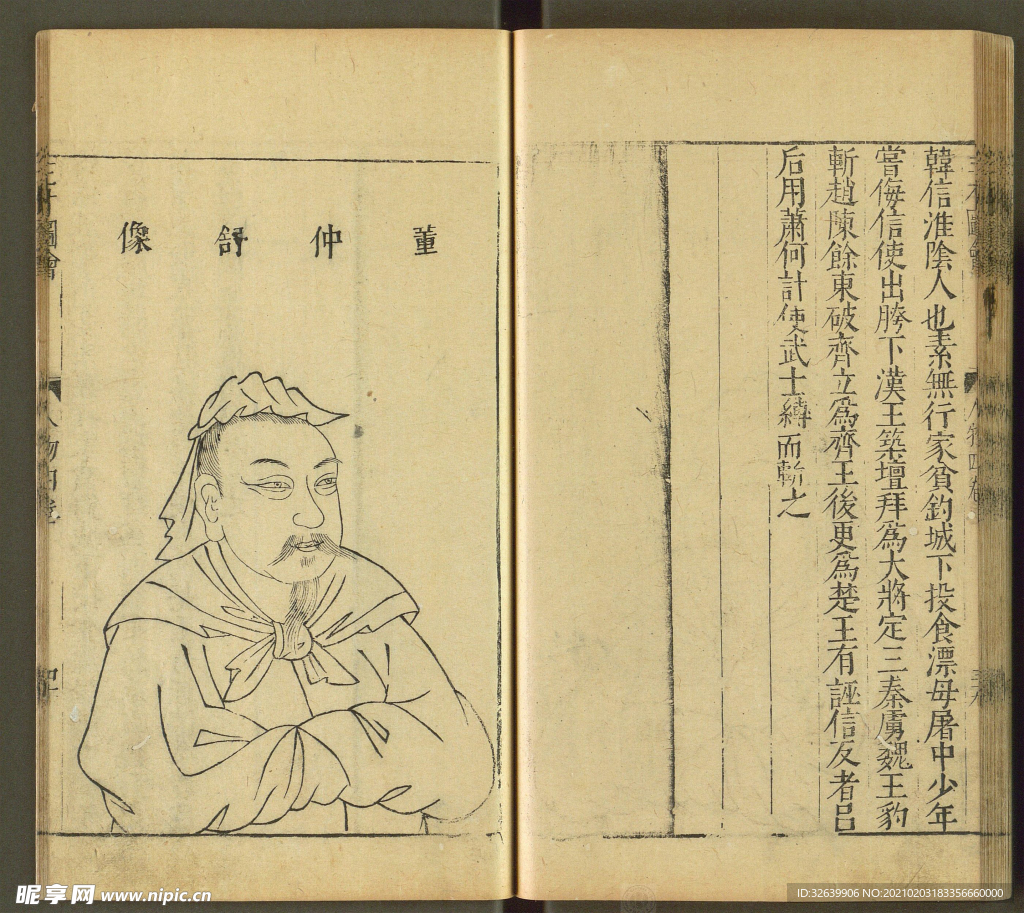 韓信淮陰人也素無行家貧釣城下投食漂母屠中少年
嘗侮信使出胯下漢王築壇拜為大將定三秦虜魏王豹
斬趙陳餘東破齊立為齊王後更為楚王有誣信反者吕
后用蕭何計使武士縛而斬之
董仲舒像
三才圖會
人物四卷
昵享网 www.nipic.cn
ID:32639906 NO:20210203183356660000